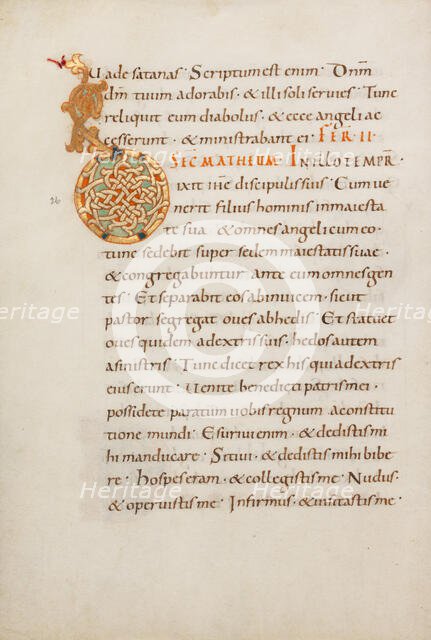 Uade satanas · Scriptum est enim · Dn̄m
dm̄ tuum adorabis · & illi soli seruies · Tunc
reliquit eum diabolus · & ecce angeli ac
cesserunt · & ministrabant ei · FER II ·
SEC MATHEUM · IN ILLO TEMPR̄
Dixit ihc discipulis suis · Cum ue
26
nerit filius hominis in maiesta
te sua · & omnes angeli cum eo ·
tunc sedebit super sedem maiestatis suae ·
& congregabuntur ante eum omnes gen
tes · Et separabit eos abinuicem · sicut
pastor segregat oues ab hedis · Et statuet
oues quidem a dextris suis · hedos autem
a sinistris · Tunc dicet rex his qui a dextris
eius erunt · Uenite benedicti patris mei ·
possidete paratum uobis regnum a constitu
tione mundi · Esuriui enim · & dedistis mi
hi manducare · Sitiui · & dedistis mihi bibe
re · hospes eram · & collegistis me · Nudus ·
& operuistis me · Infirmus · & uisitastis me ·
Heritage
Heritage
Heritage
Heritage
Heritage
Heritage
Heritage
C